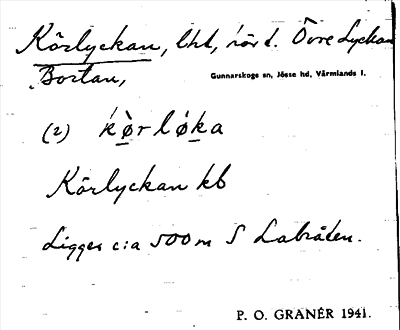 Körlyckan, lht, nörd. Övre Lyckan
Bortan,
Gunnarskogs sn, Jösse hd, Värmlands l.
(2) kø̀rløka
Körlyckan kb
Ligger c:a 500 m S Labråten.
P. O. GRANÉR 1941.